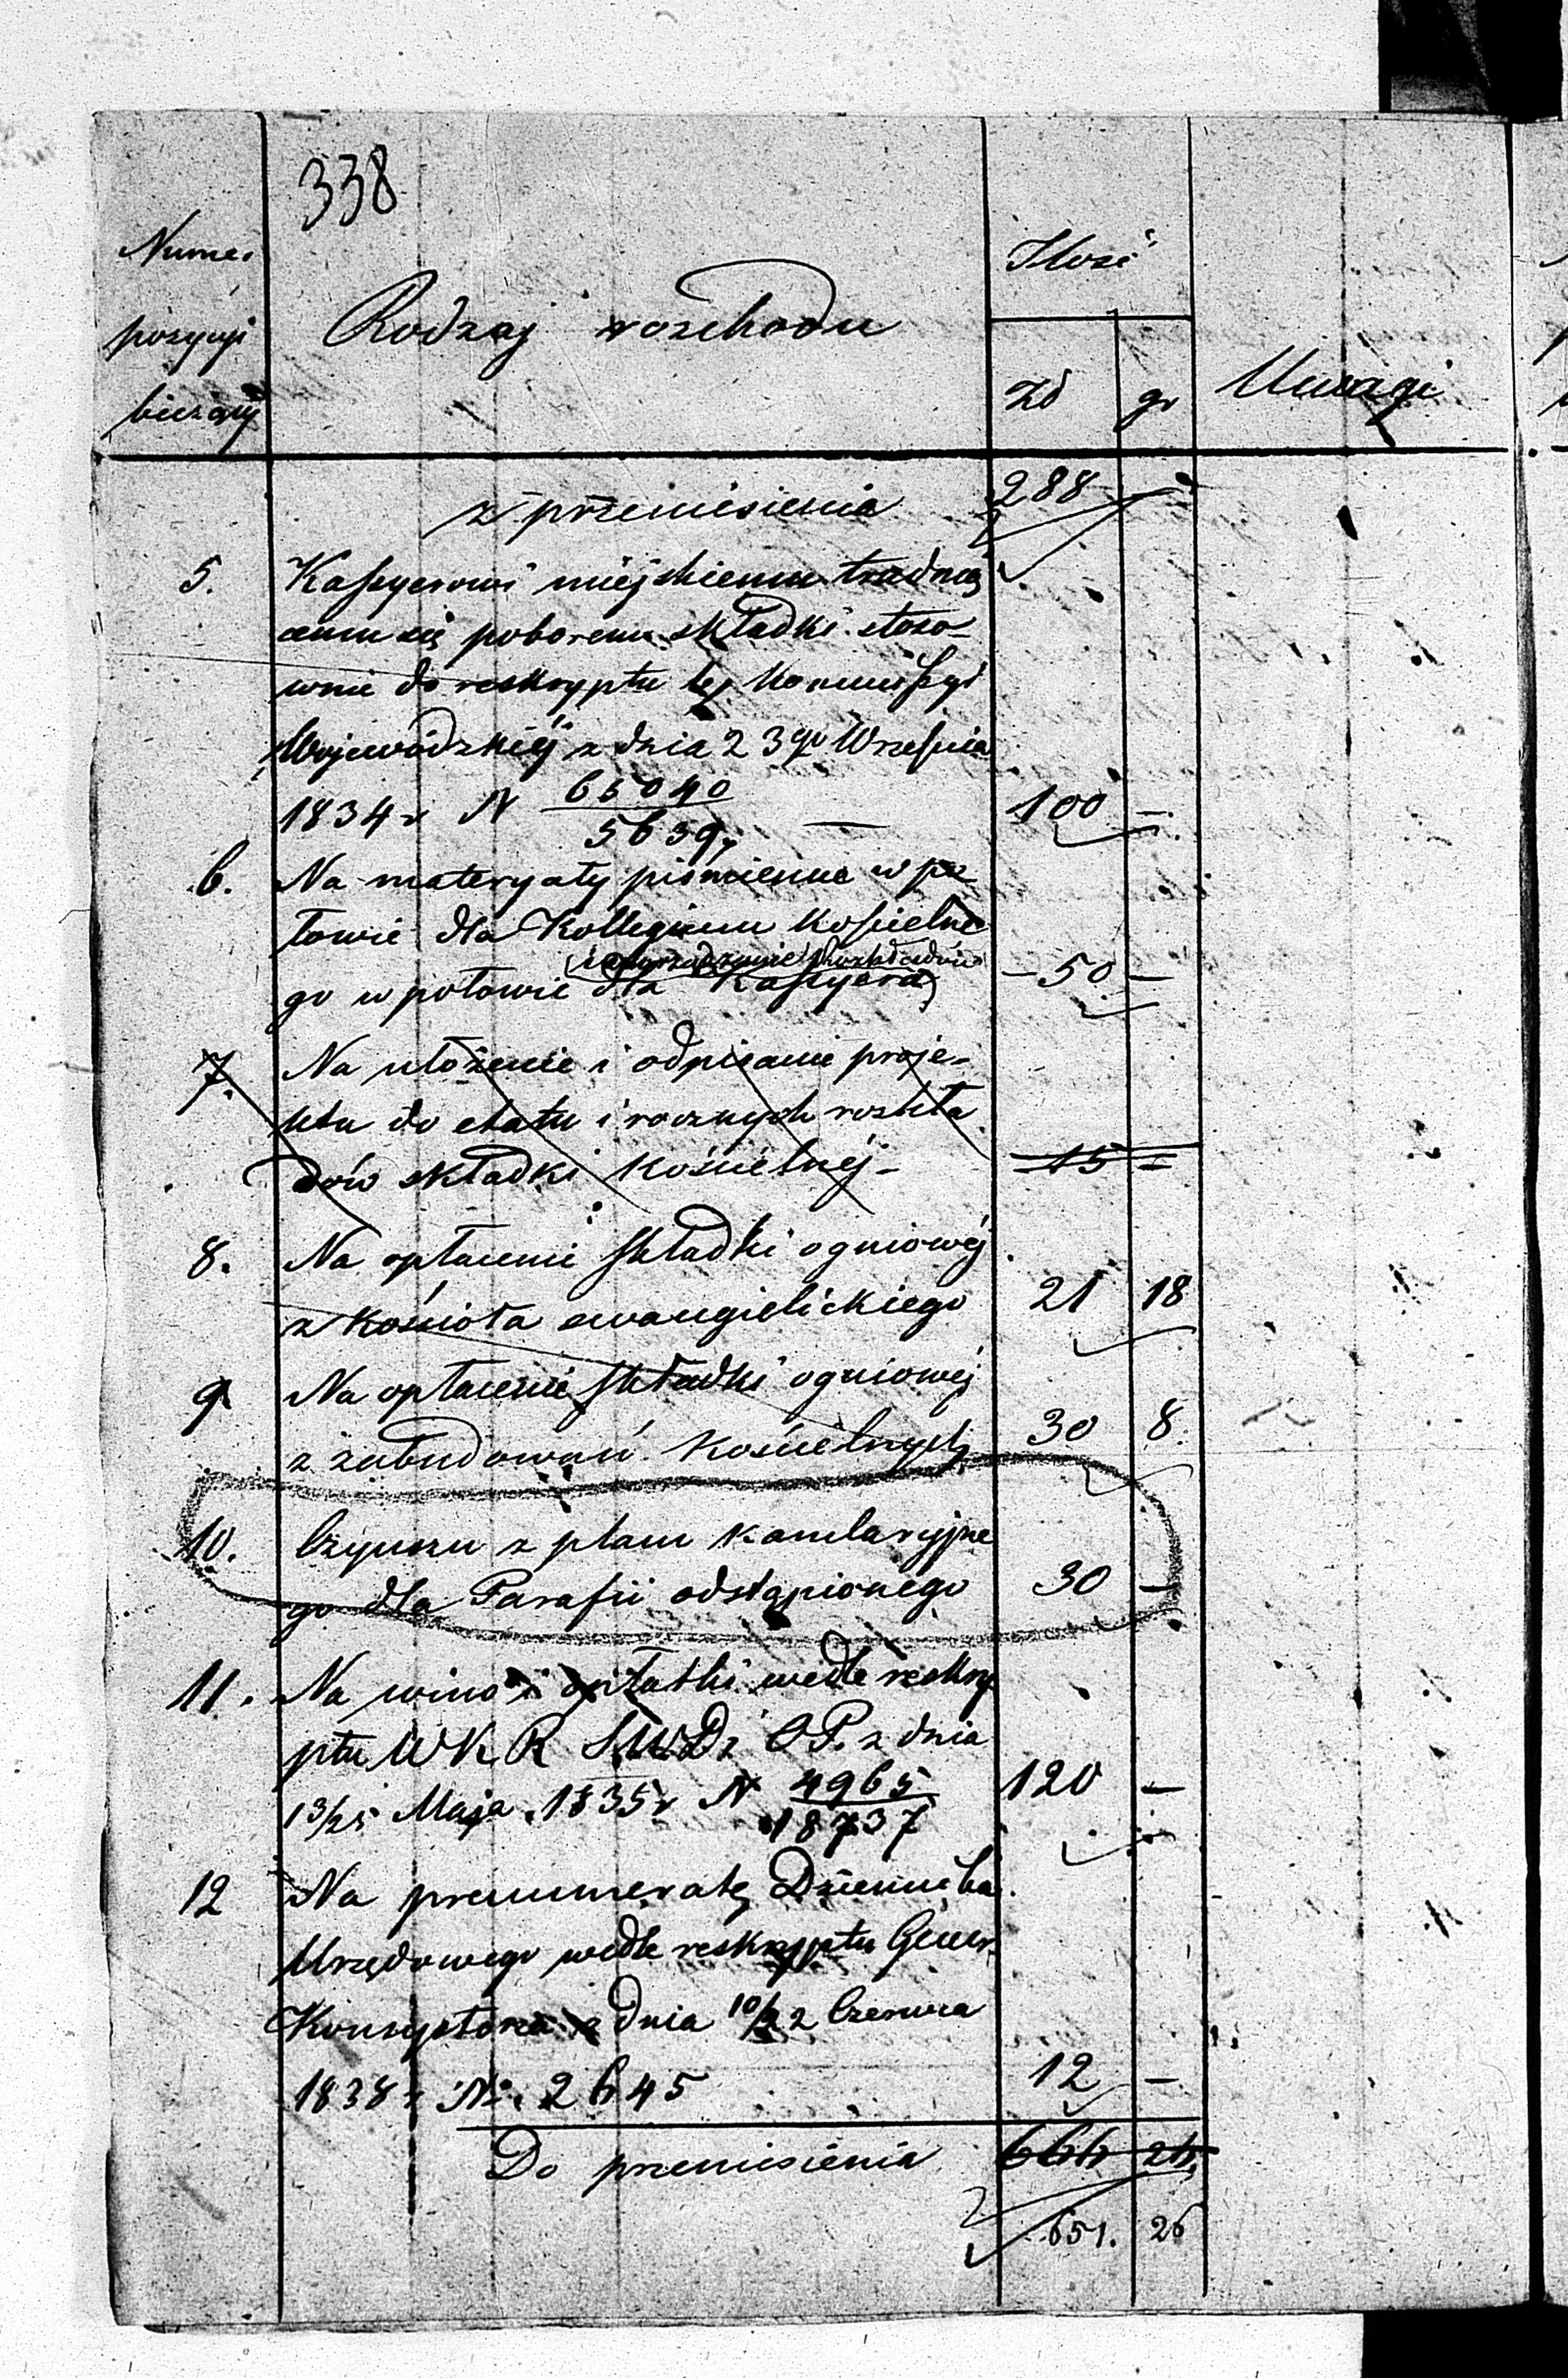 338
Numer
pozycyi
bieżący
Rodzaj rozchodu
Ilość
Zł gr
Uwagi
z przeniesienia 288 -
5. Kassyerowi miejskiemu trudnią
cemu się poborem składki stoso-
wnie do reskryptu tej Kommissyi
Wojewódzkiéj z dnia 23go Września
1834 r N 65040/5639. — 100 -
6. Na materyały piśmienne w po
łowie dla Kollegium Kościelne
go w połowie dla Kassyera 50 -
7. Na ułożenie i odpisanie proje-
ktu do etatu i rocznych rozkła
dów składki Kościelnéj - 15 -
8. Na opłacenie składki ogniowéj
z kościoła ewangielickiego 21 18
9 Na opłacenie składki ogniowéj
z zabudowań Kościelnych 30 8.
10. Czynszu z placu kancelaryjne
go dla Parafii odstąpionego 30 -
11. Na wino i opłatki wedle reskry
ptu WKR SWD i OP. z dnia
13/25 Maja 1835 r N 4965/18737 120 -
12 Na prenumeratę Dziennika
Urzędowego wedle reskryptu Gener.
Konsystorza z dnia 10/22 Czerwca
1838 r No. 2645 12 -
Do przeniesienia 666 26
651. 26